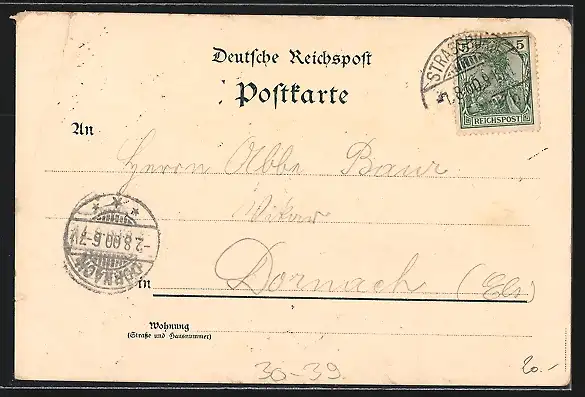 Deutsche Reichspost
Postkarte
STRASSBU
1.8.00.
5
REICHSPOST
An
Herrn Abbe Baur
Vikar
DORNACH
-2.8.00.6-7V
in Dornach (Els)
Wohnung
(Straße und Hausnummer)
30-39.
20.-